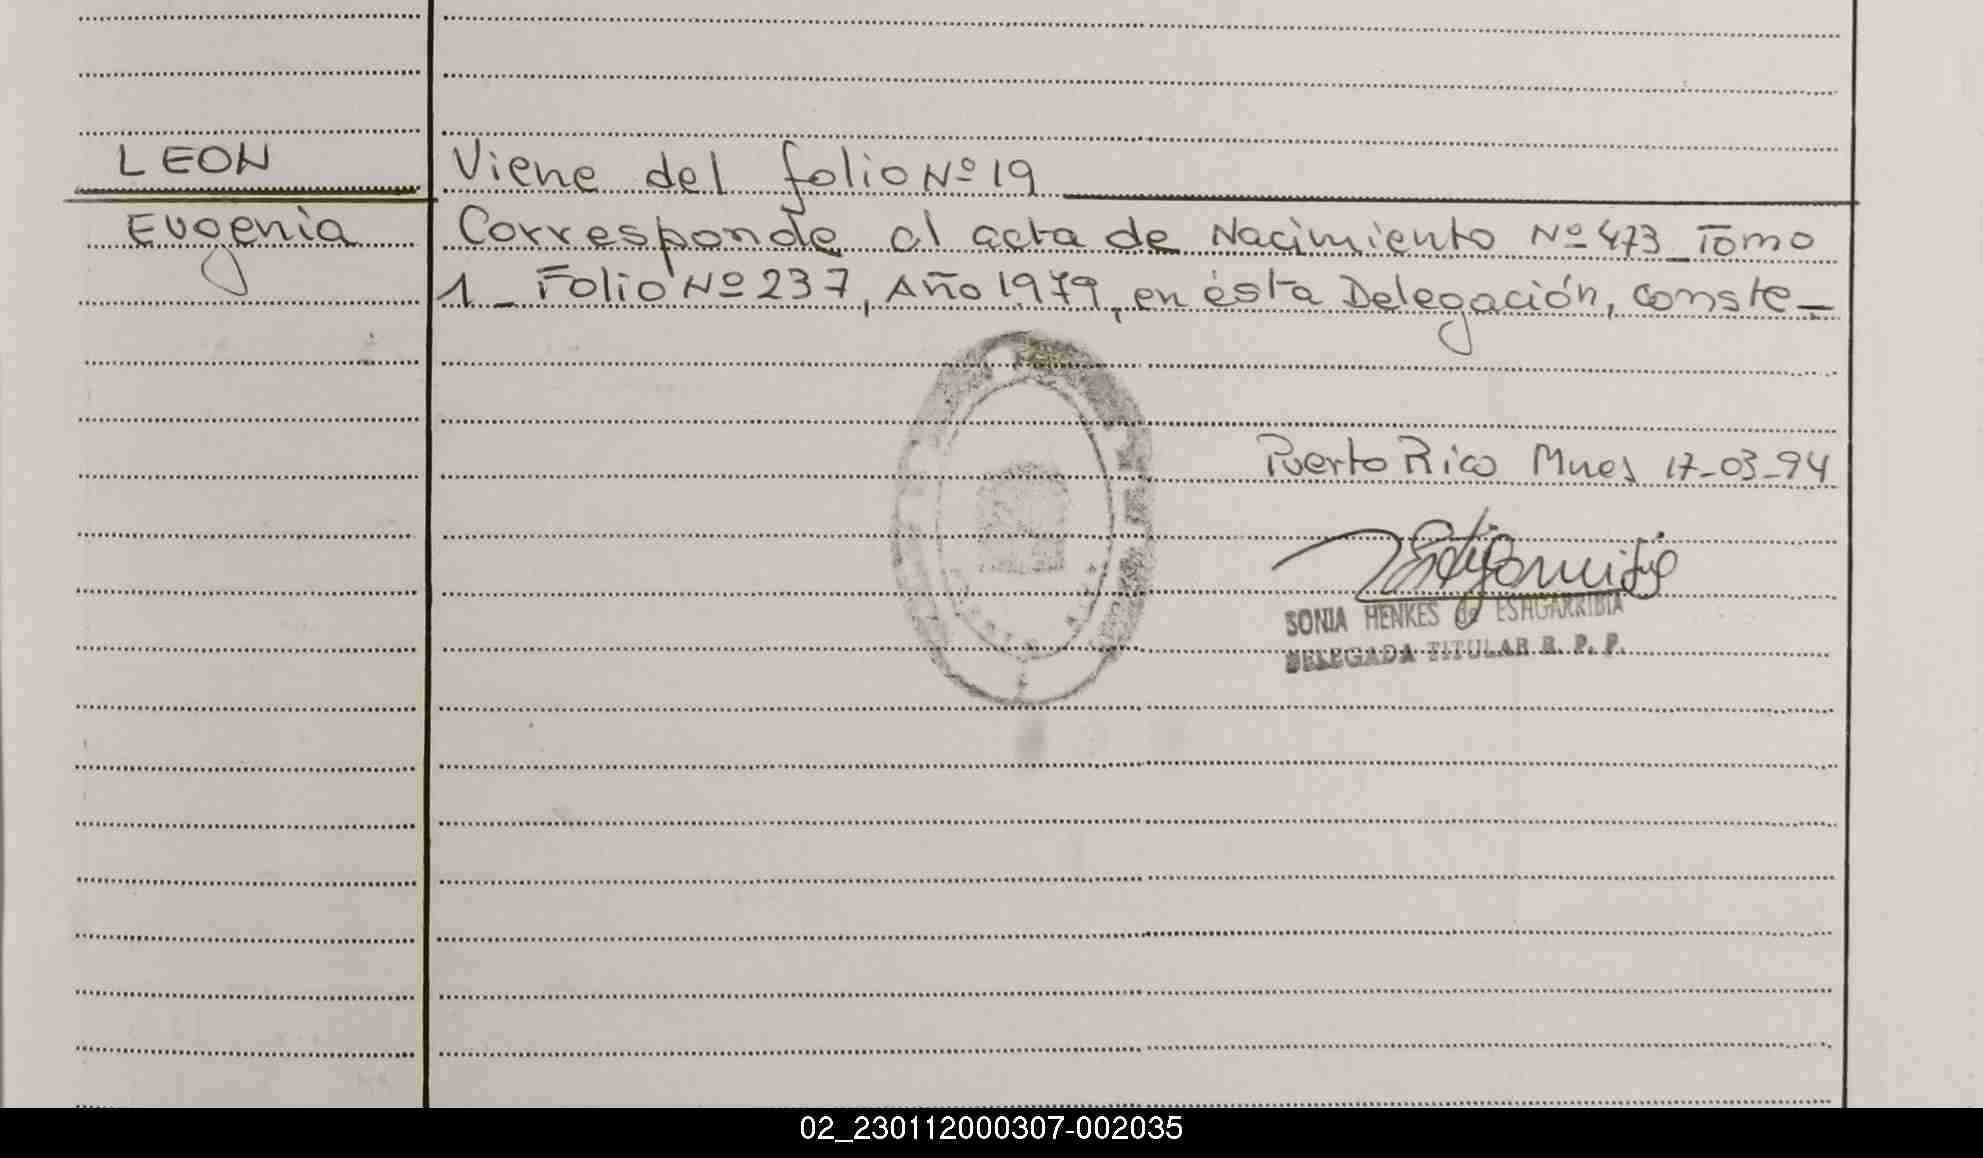 LEON
Viene del folio Nº 19
Eugenia
Corresponde al acta de Nacimiento Nº 473_Tomo
1_ Folio Nº 237, Año 1979, en ésta Delegación, conste_
Puerto Rico Mnes 17-03-94
SONIA HENKES de ESHGARRIBIA
DELEGADA TITULAR R. P. P.
02_230112000307-002035